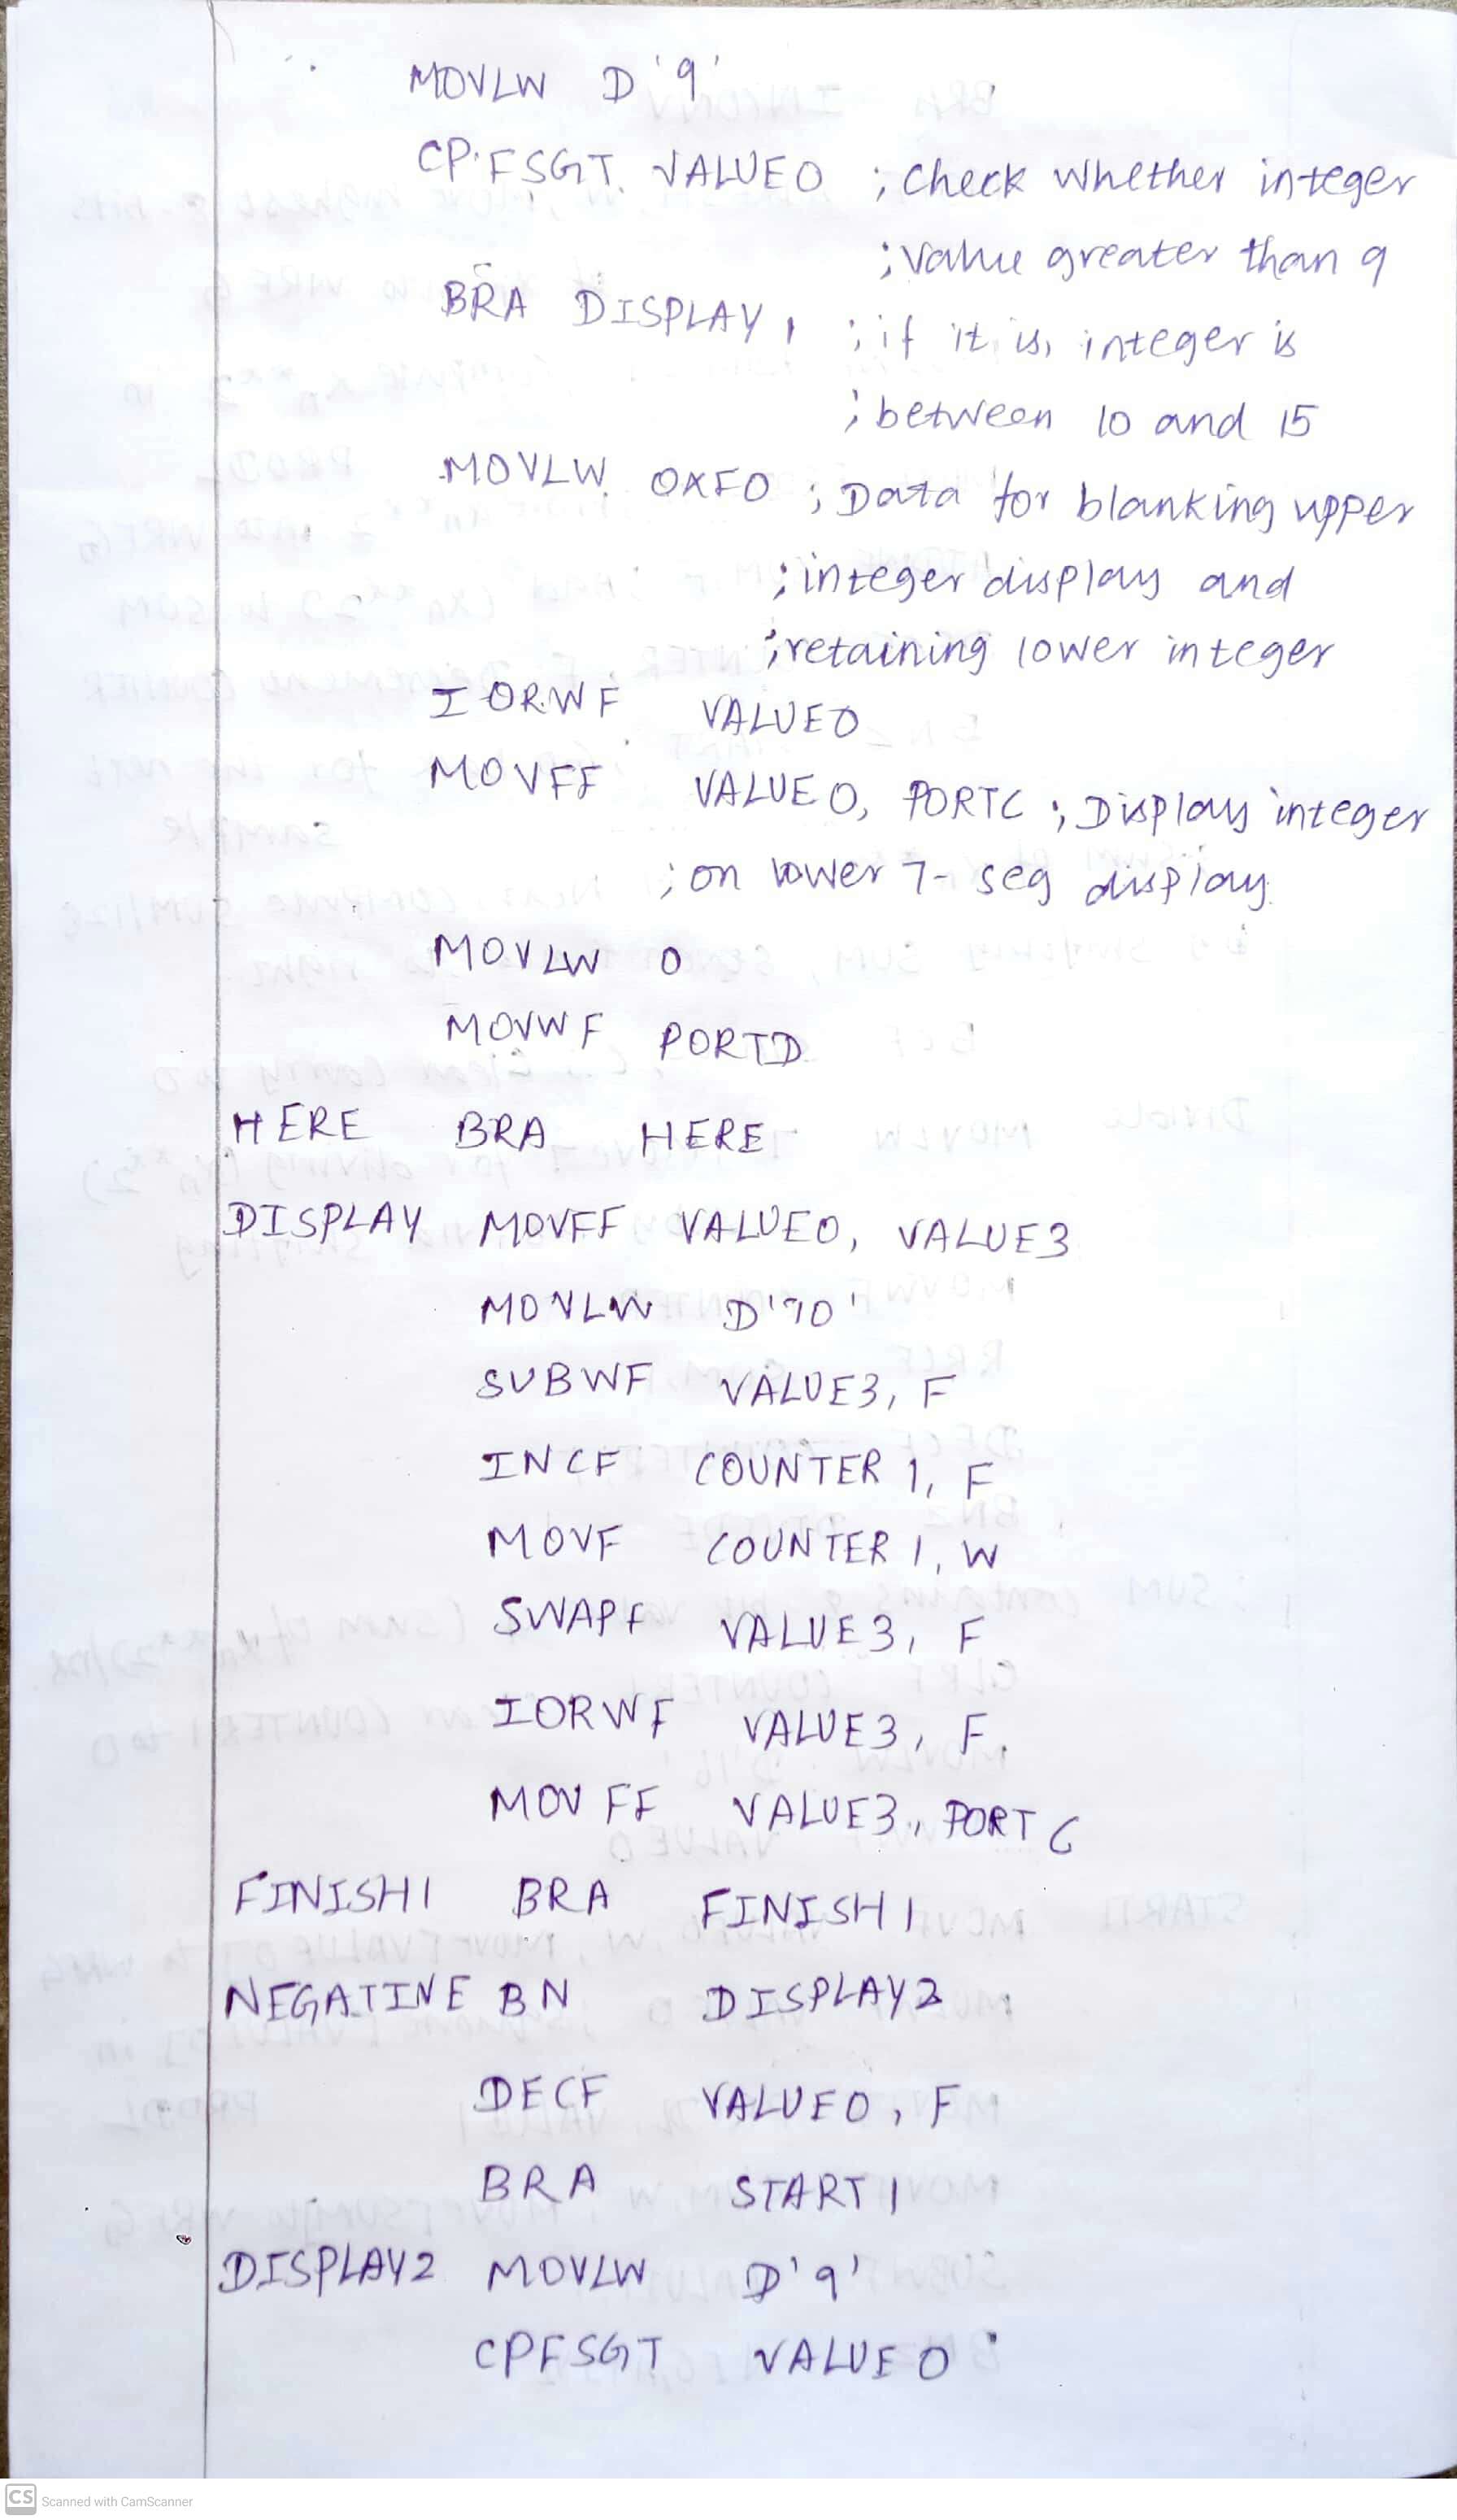 MOVLW D'9'
CPFSGT VALUE0 ; Check whether integer
; Value greater than 9
BRA DISPLAY, ; if it is, integer is
; between 10 and 15
MOVLW 0XF0 ; Data for blanking upper
; integer display and
; retaining lower integer
IORWF VALUE0
MOVFF VALUE0, PORTC ; Display integer
; on lower 7-seg display
MOVLW 0
MOVWF PORTD
HERE BRA HERE
DISPLAY MOVFF VALUE0, VALUE3
MOVLW D'10'
SUBWF VALUE3, F
INCF COUNTER 1, F
MOVF COUNTER 1, W
SWAPF VALUE3, F
IORWF VALUE3, F.
MOVFF VALUE3, PORTC
FINISH1 BRA FINISH1
NEGATIVE BN DISPLAY2
DECF VALUE0, F
BRA START1
DISPLAY2 MOVLW D'9'
CPFSGT VALUE0
CS Scanned with CamScanner